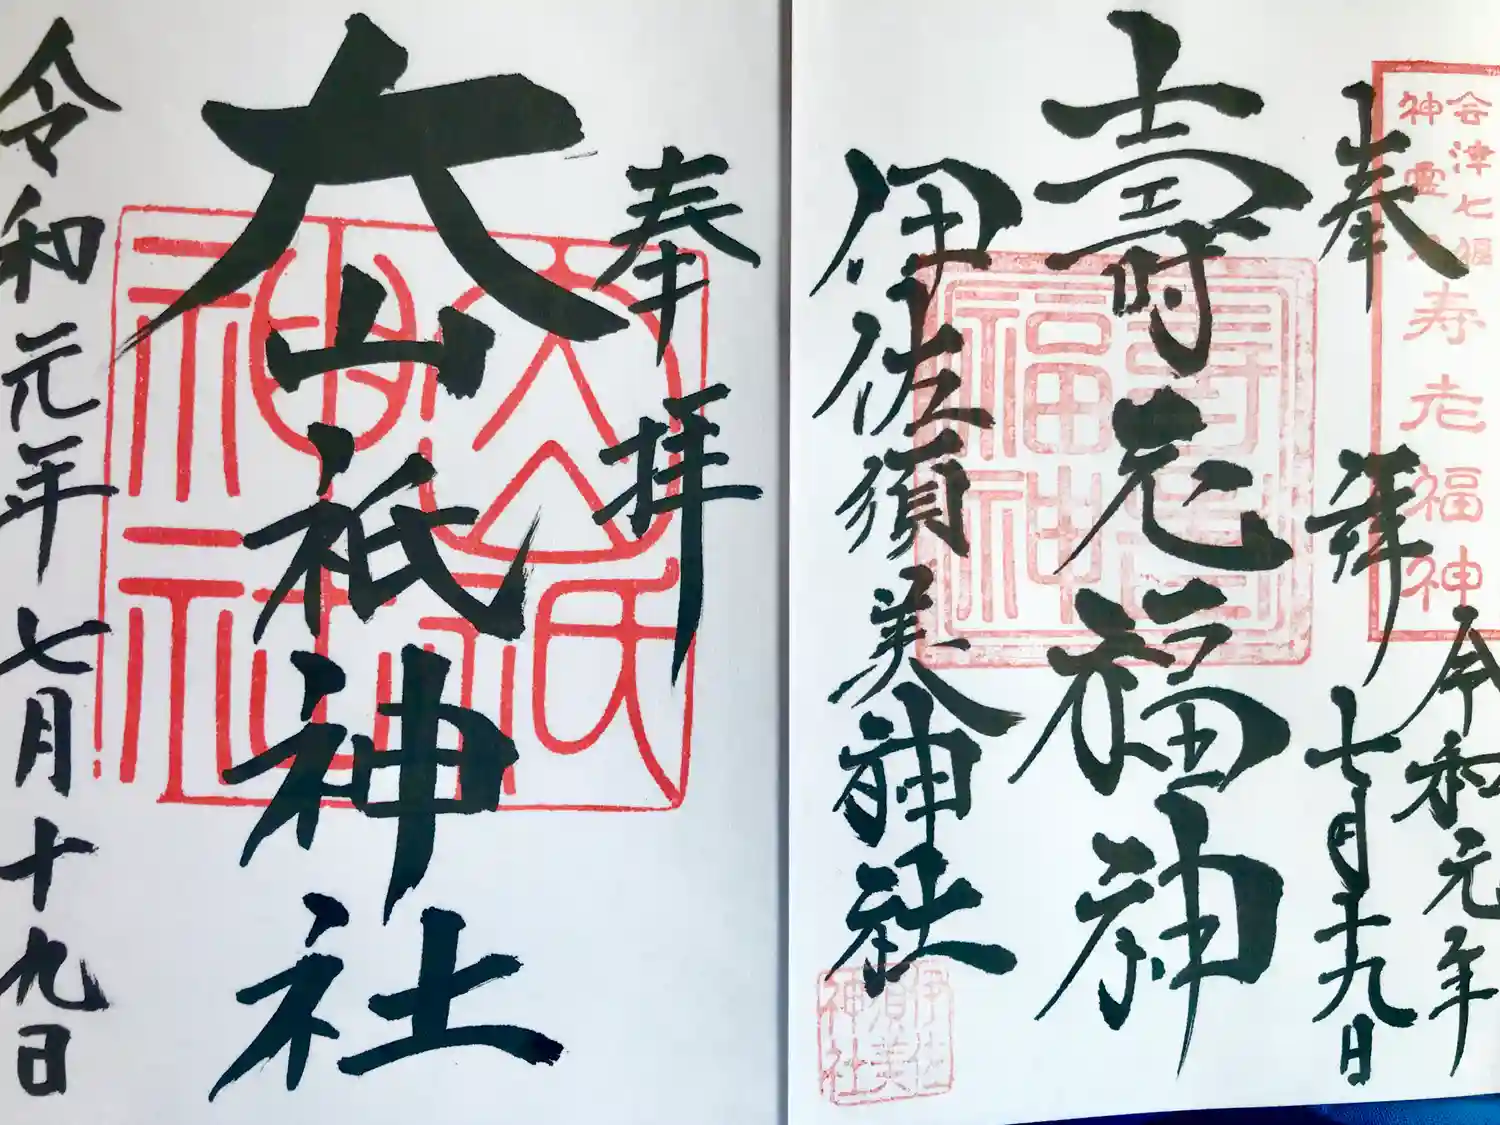 奉拝
大山祇神社
令和元年七月十九日
大山祇神社
会津七福
神霊
寿老福神
奉拝
令和元年
七月十九日
壽老福神
寿老福神
伊佐須美神社
伊佐須美神社